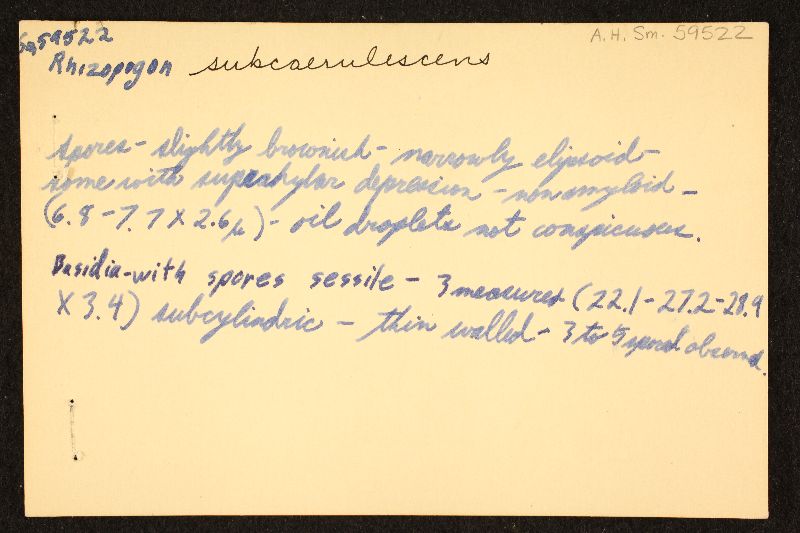 Sm 59522
A. H. Sm. 59522
Rhizopogon subcaerulescens
spores - slightly brownish - narrowly elipsoid -
some with suprahylar depression - nonamyloid -
(6.8 - 7.7 X 2.6 µ) - oil droplets not conspicuous.
Basidia - with spores sessile - 3 measured (22.1 - 27.2 - 28.9
X 3.4) subcylindric - thin walled - 3 to 5 spored observed.